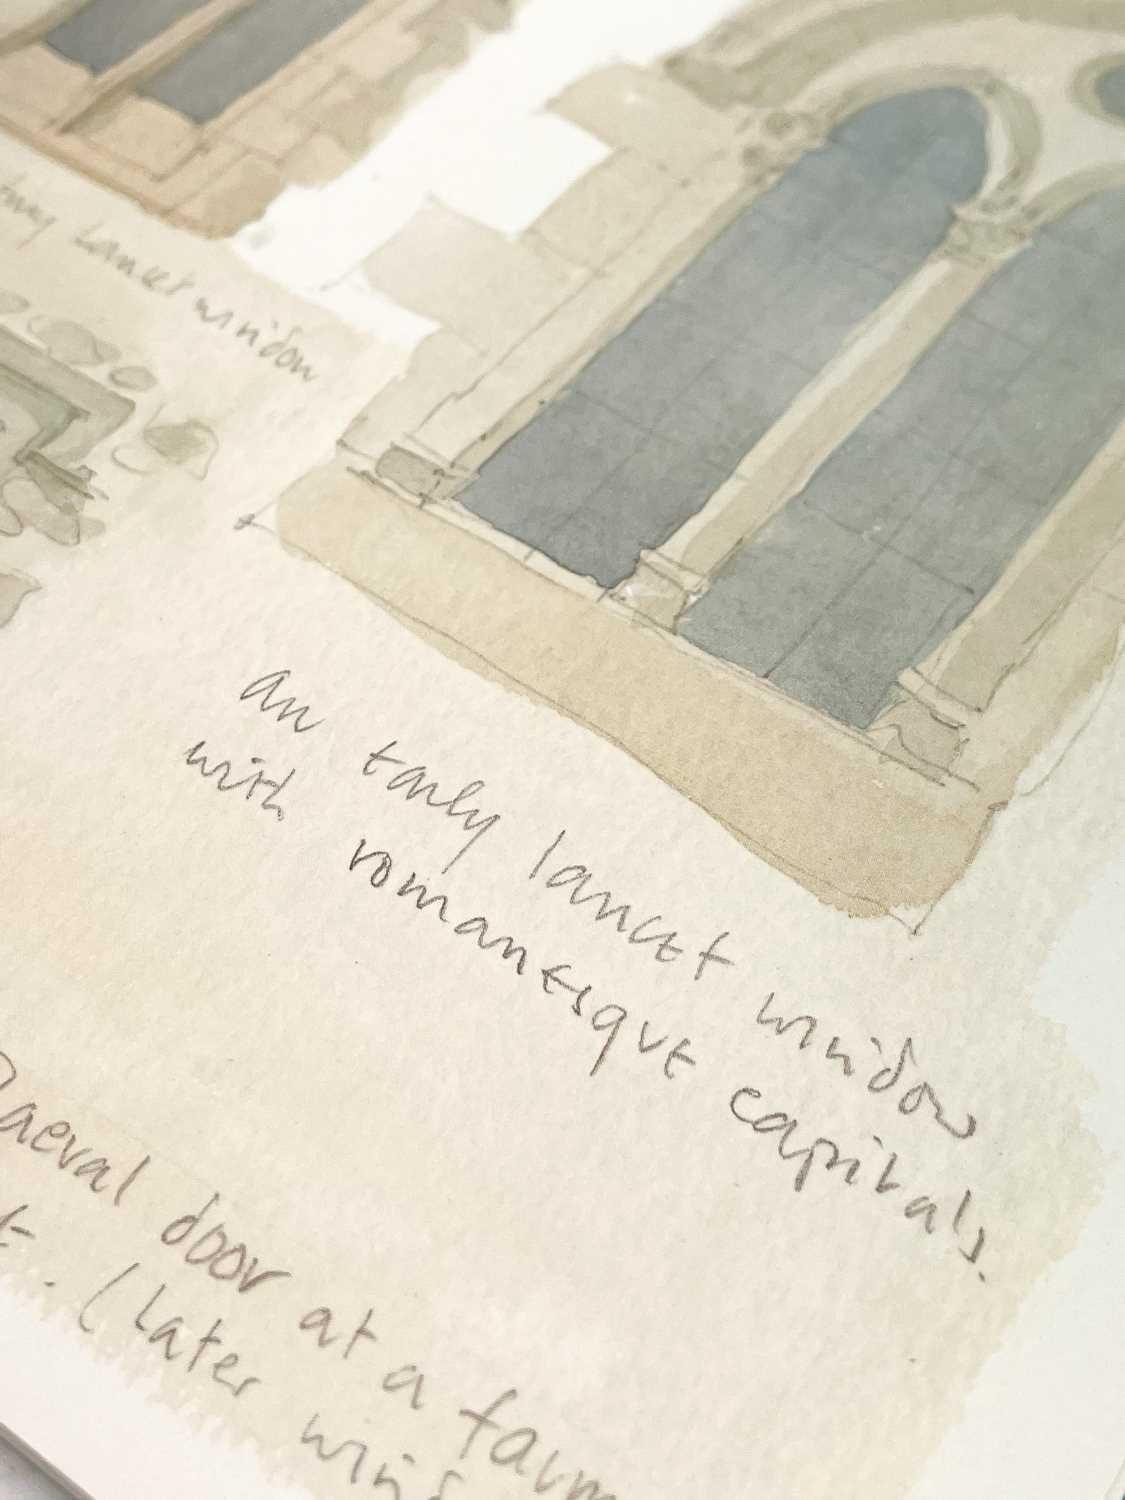 Lancet window
an Early lancet window
with romanesque capitals.
door at a farm
. (Later wind